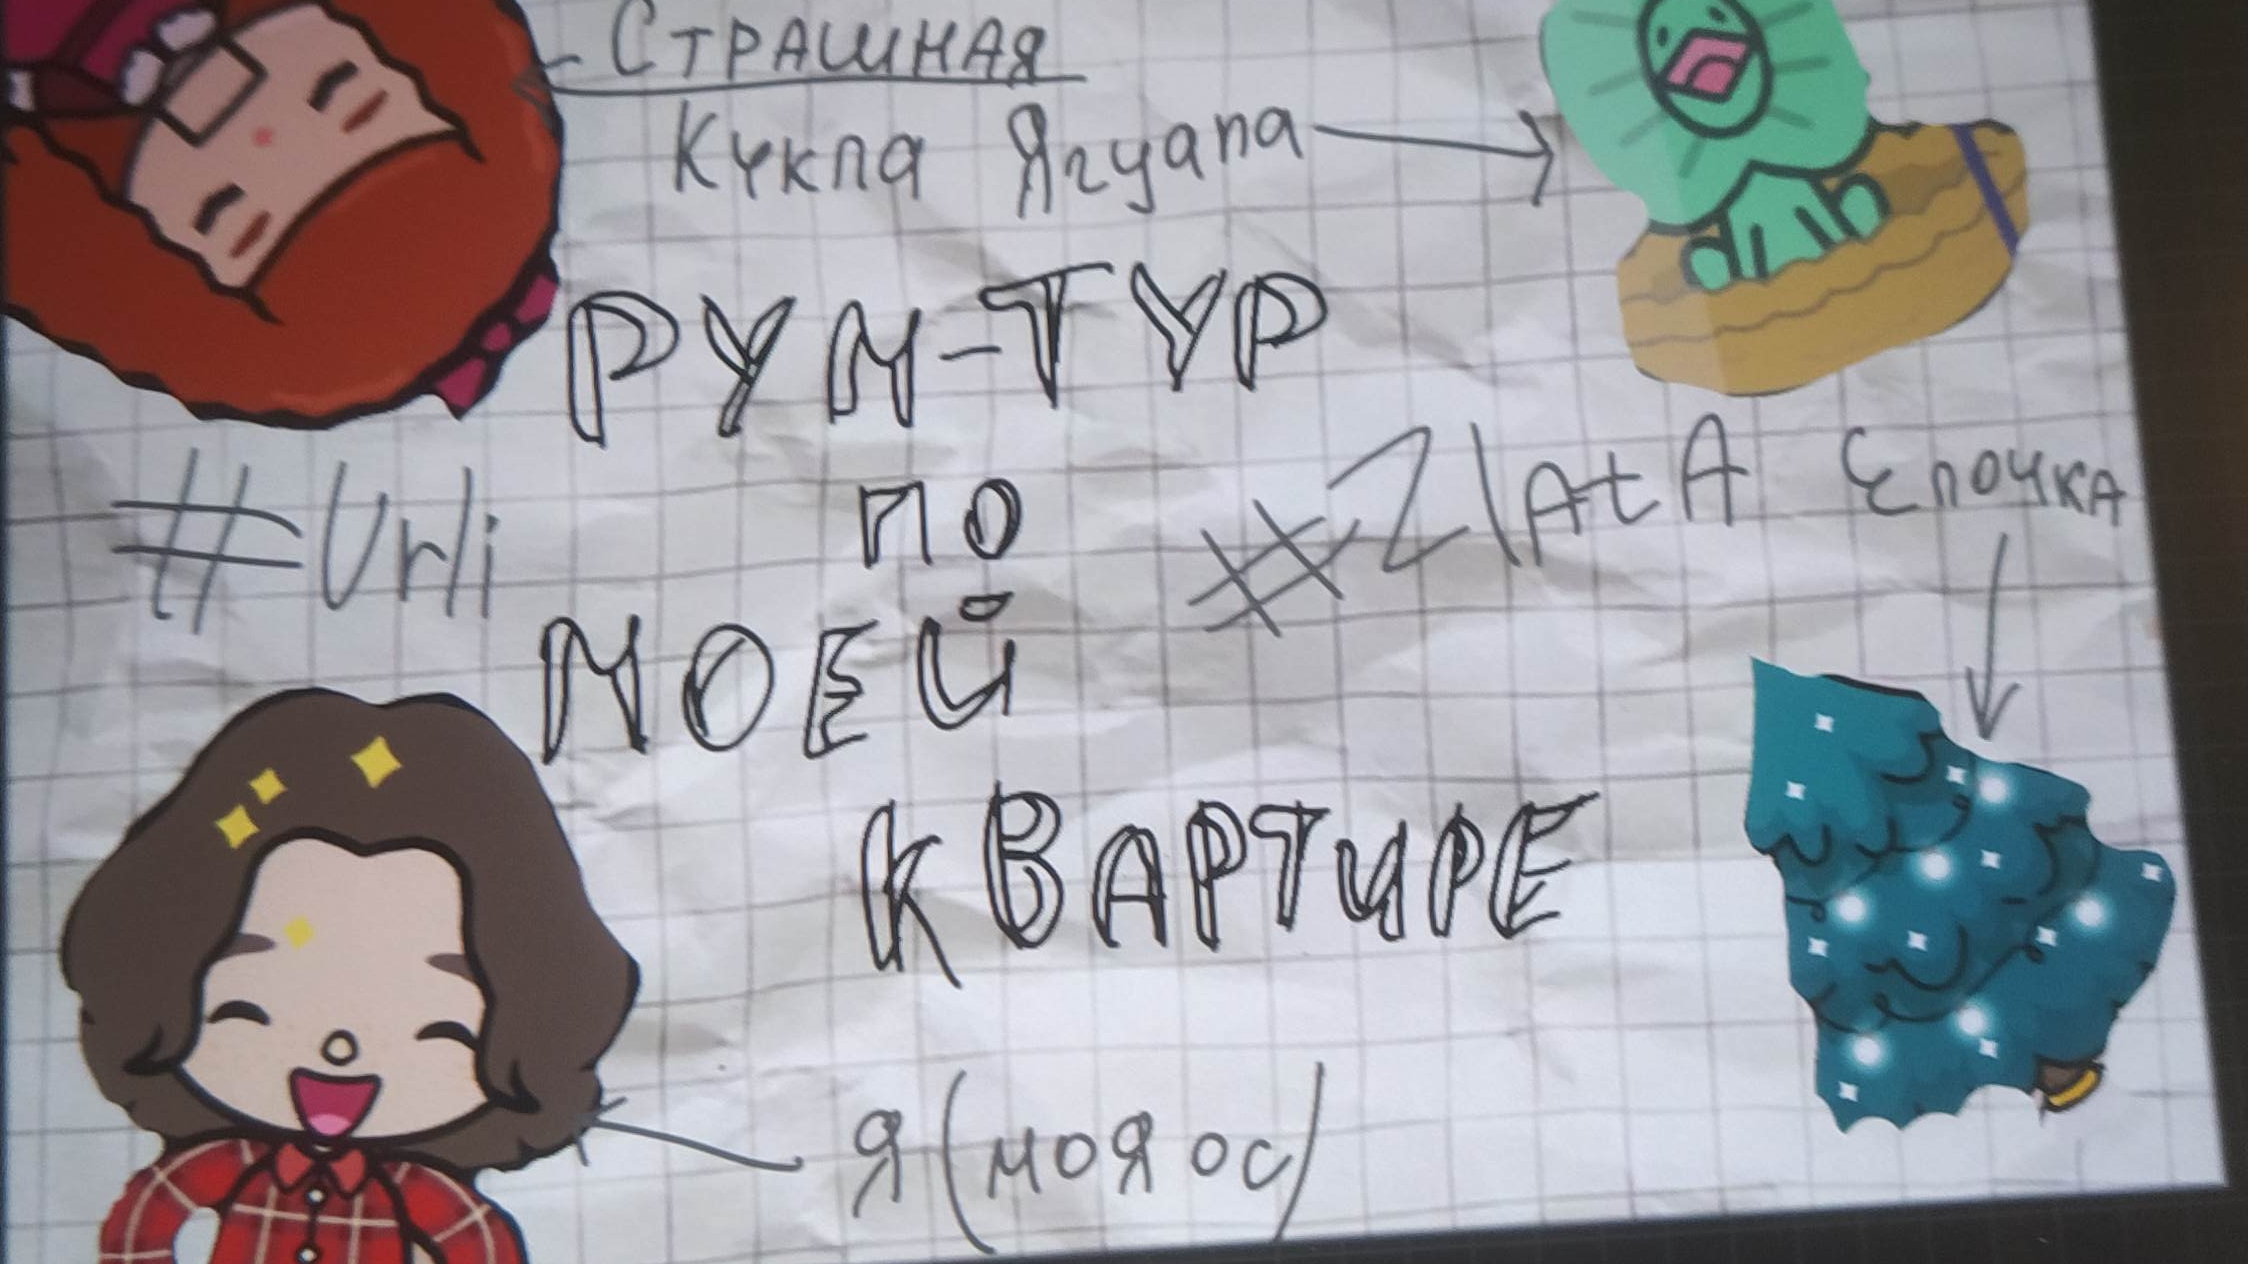 - Страшная
Кукла Ягуапа
РУМ-ТУР
#Urli
ПО
#ZlAtA
Елочка
МОЕЙ
КВАРТИРЕ
Я (моя ос)